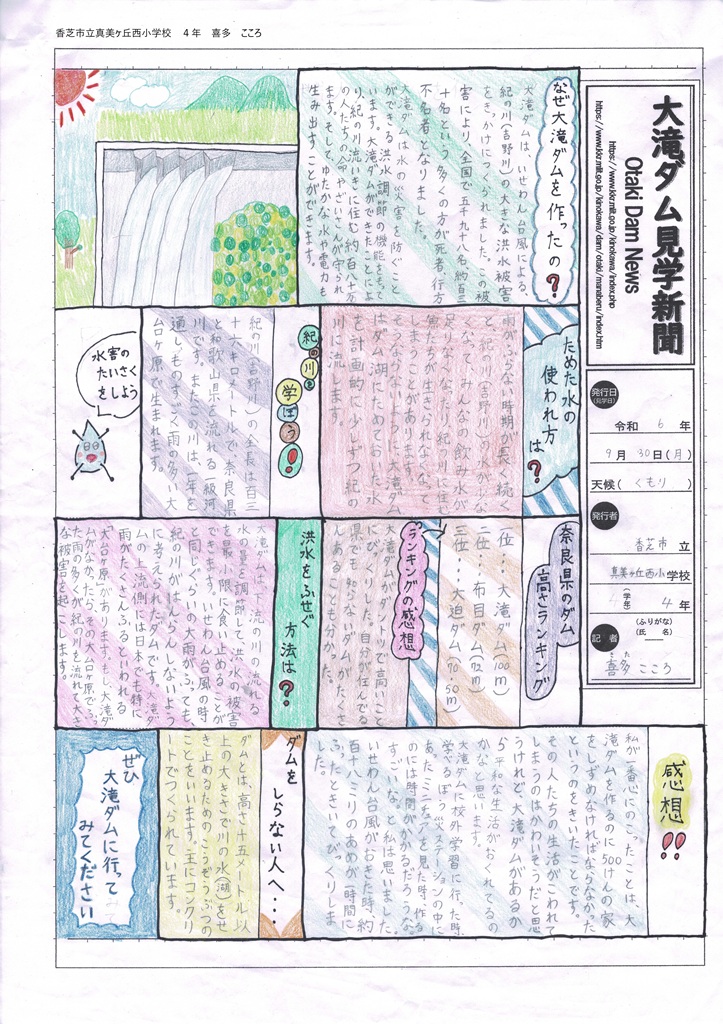 香芝市立真美ヶ丘西小学校　４年　喜多　こころ
大滝ダム見学新聞
Otaki Dam News
https://www.kkr.mlit.go.jp/kinokawa/index.php
https://www.kkr.mlit.go.jp/kinokawa/dam/otaki/manaberu/index.htm
発行日
(見学日)
令和 6 年
9 月 30 日(月)
天候(くもり)
発行者
香芝市 立
真美ヶ丘西小学校
(学年) 4 年
記者
(ふりがな)
(氏 名)
きた
喜多 こころ
なぜ大滝ダムを作ったの?
大滝ダムは、いせわん台風による、
紀の川(吉野川)の大きな洪水被害
をきっかけにつくられました。この被
害により、全国で五千九十八名約百三
十名という多くの方が死者、行方
不名者となりました。
大滝ダムは水の災害を防ぐこと
ができる洪水調節の機能をもって
います。大滝ダムができたことによ
り、紀の川流いきに住む約六十万
の人たちの命やざいさんが守られ
ます。そして、ゆたかな水や電力も
生み出すことができます。
ためた水の
使われ方
は?
雨がふらない時期が長く続く
と、紀の川(吉野川)の水が少な
くなって、みんなの飲み水が
足りなくなったり、紀の川に住む
魚たちが生きられなくなって
しまうことがあります。
そうならないように、大滝ダム
はダム湖にためておいた水
を計画的に少しずつ紀の
川に流します。
紀の川を
学ぼう!
紀の川(吉野川)の全長は百三
十六キロメートルで、奈良県
と和歌山県を流れる一級河
川です。またこの川は、一年を
通しものすごく雨の多い大
台ヶ原で生まれます。
水害の
たいさく
をしよう
奈良県のダム
高さランキング
一位…大滝ダム(100m)
二位…布目ダム(72m)
三位…大迫ダム(70.5m)
ランキングの感想
大滝ダムがダントツで高いこと
にびっくりした。自分が住んでる
県でも知らないダムがたくさ
んあることも分かった。
洪水をふせぐ
方法は?
大滝ダムは、下流の川の流れる
水の量を調節して、洪水の被害
を最小限に食い止めることが
できます。いせわん台風の時
と同じぐらいの大雨がふっても、
紀の川がはんらんしないよう
に考えられたダムです。大滝ダ
ムの上流側には日本でも特に
雨がたくさんふるといわれる
「大台ヶ原」があります。もし、大滝ダ
ムがなかったら、その大台ヶ原でふっ
た雨の多くが紀の川を流れて大き
な被害を起こします。
感想!!
私が一番心にのこったことは、大
滝ダムを作るのに500けんの家
をしずめなければならなかった
というのをきいたことです。
その人たちの生活がこわれて
しまうのはかわいそうだと思
うけれど、大滝ダムがあるか
ら平和な生活がおくれてるの
かなと思います。
大滝ダムに校外学習に行った時、
学べるぼう災ステーションの中に
あったミニチュアを見た時、作る
のには時間がかかるだろうな、
すごいな。と私は思いました。
いせわん台風がおきた時、約
百十八ミリのあめが一時間に
ふったときいてびっくりしま
した。
ダムを
しらない人へ…
ダムとは、高さ十五メートル以
上の大きさで川の水(湖)をせ
き止めるためのこうぞうぶつの
ことをいいます。主にコンクリ
ートでつくられています。
ぜひ
大滝ダムに行って
みてください